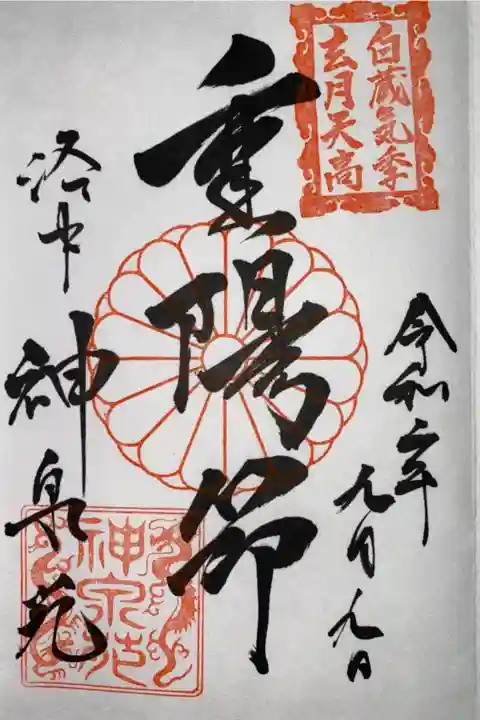 白蔵気季
玄月天高
令和二年
九月九日
重陽節
洛中
神泉苑
神泉苑